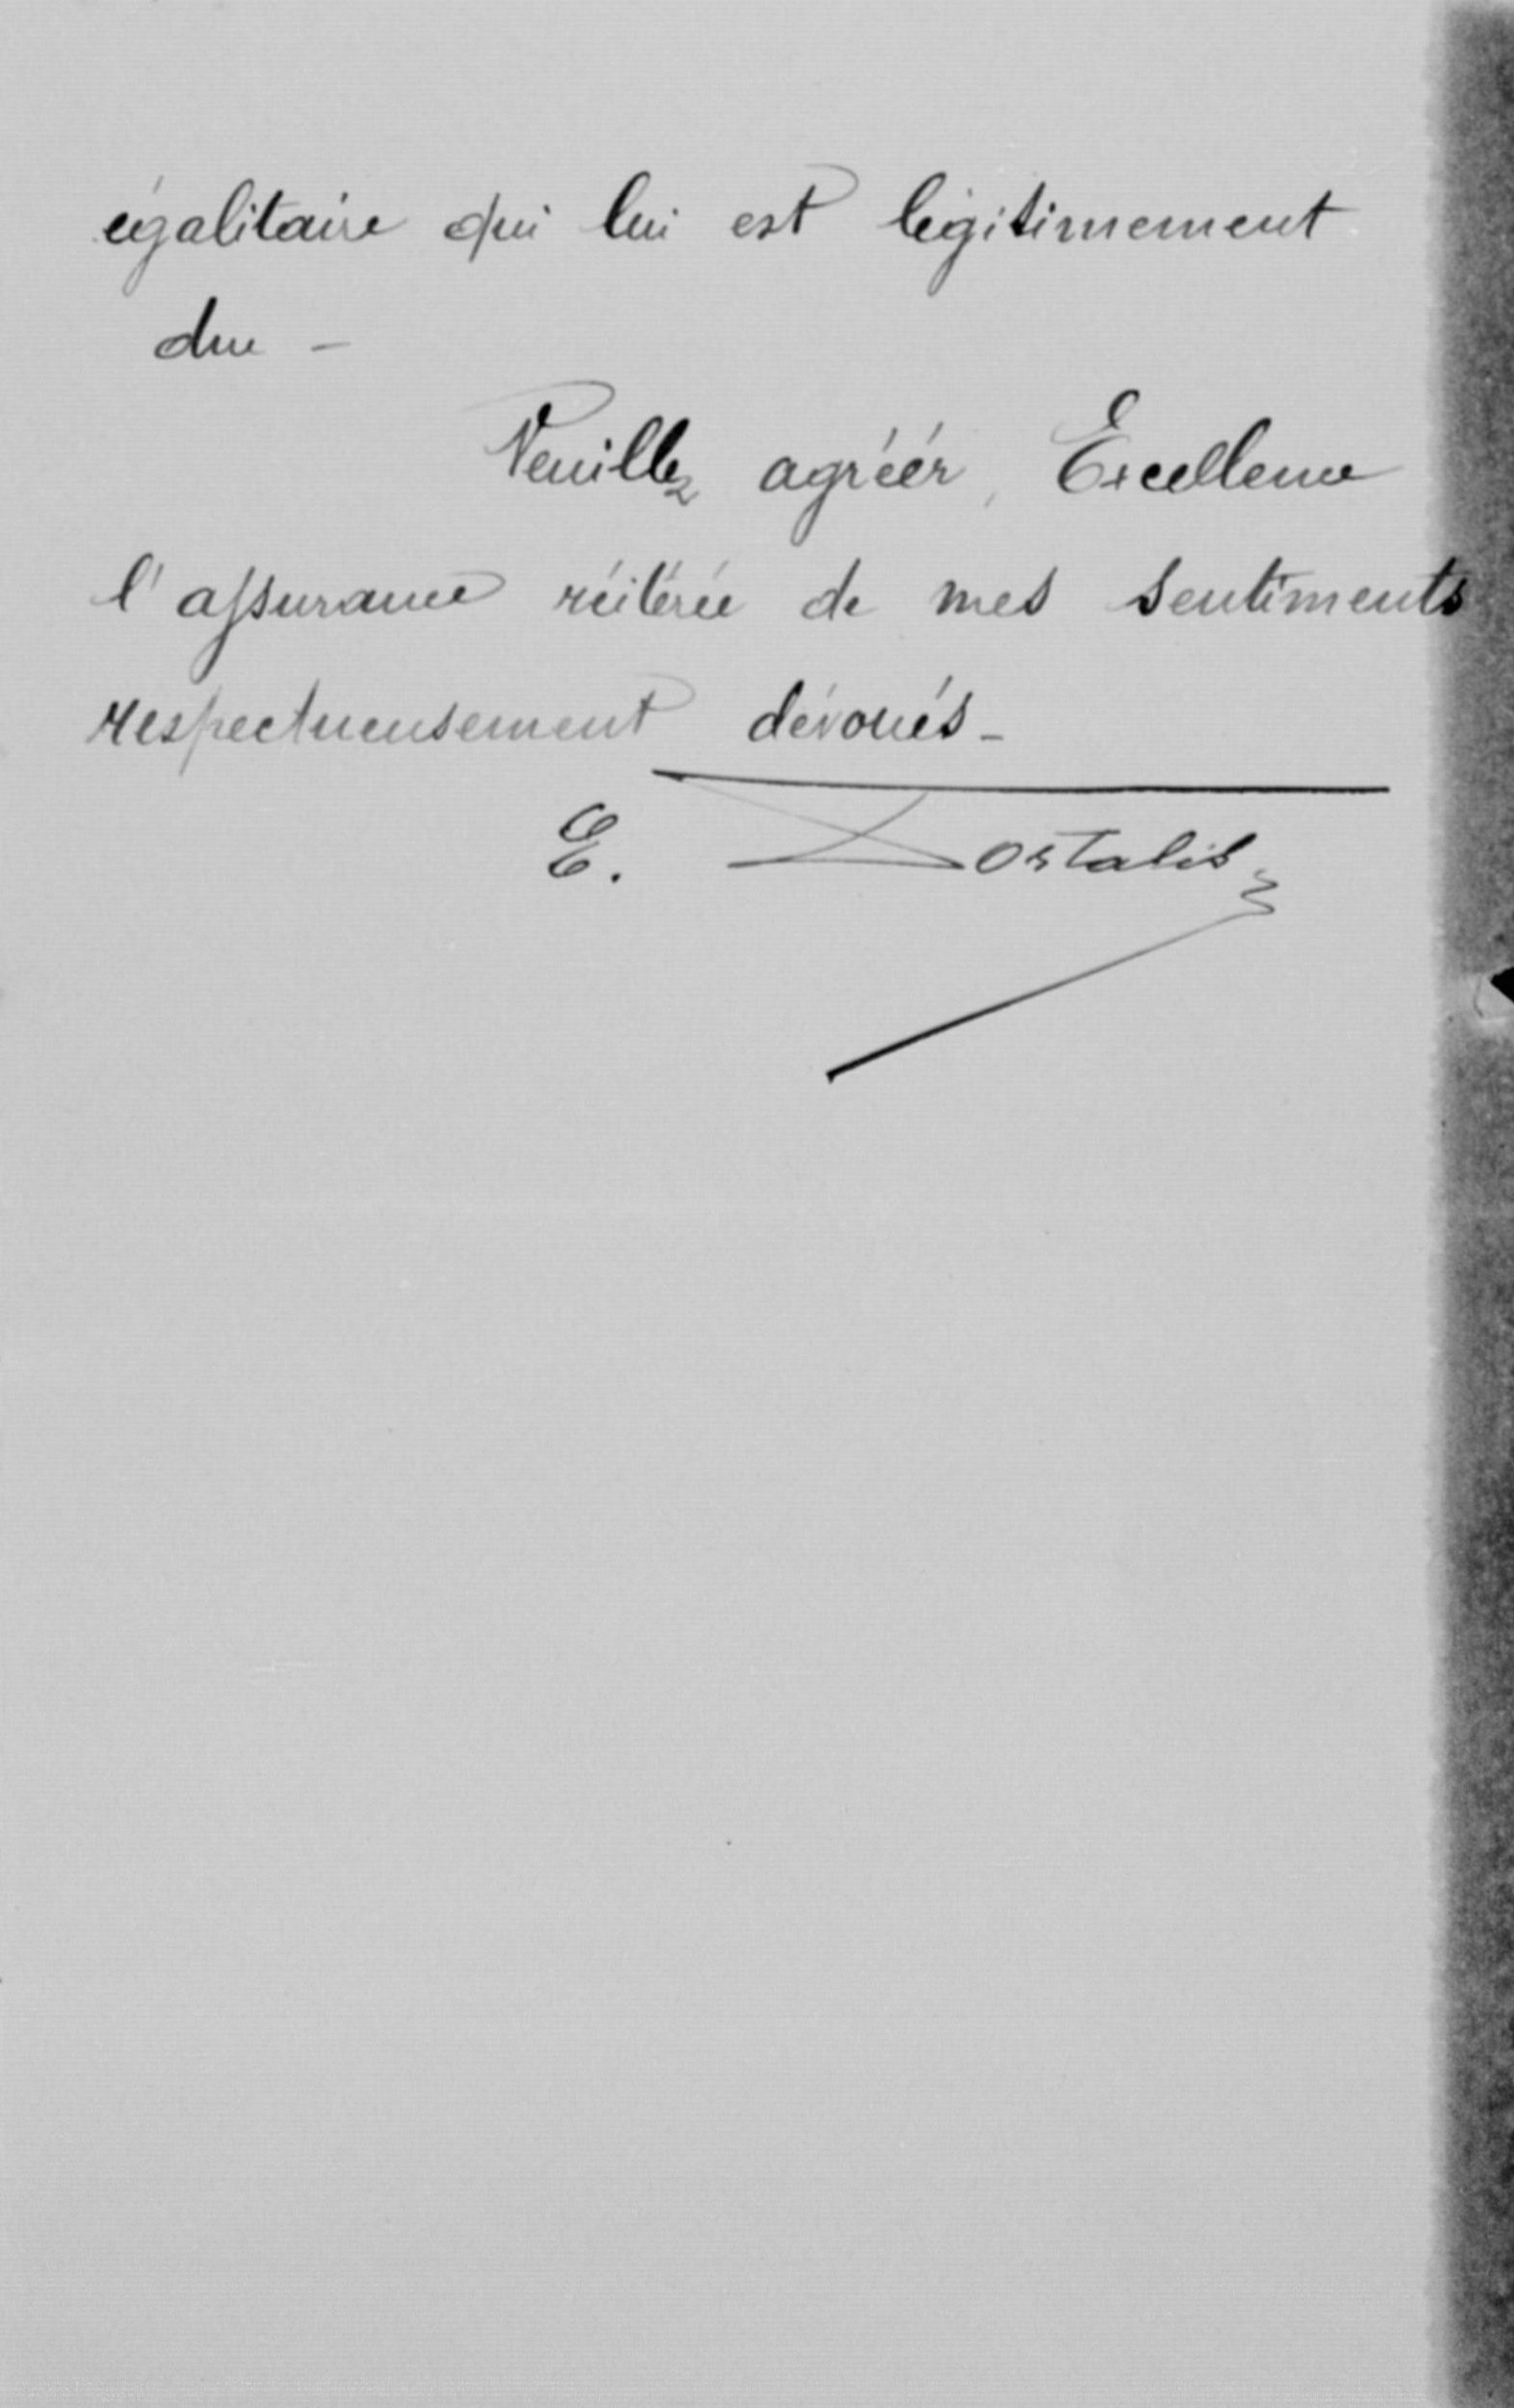 égalitaire qui lui est légitimement
due -
Veuillez agréér, Excellence
l'assurance réitérée de mes sentiments
respectueusement dévoués -
E. Dostalis